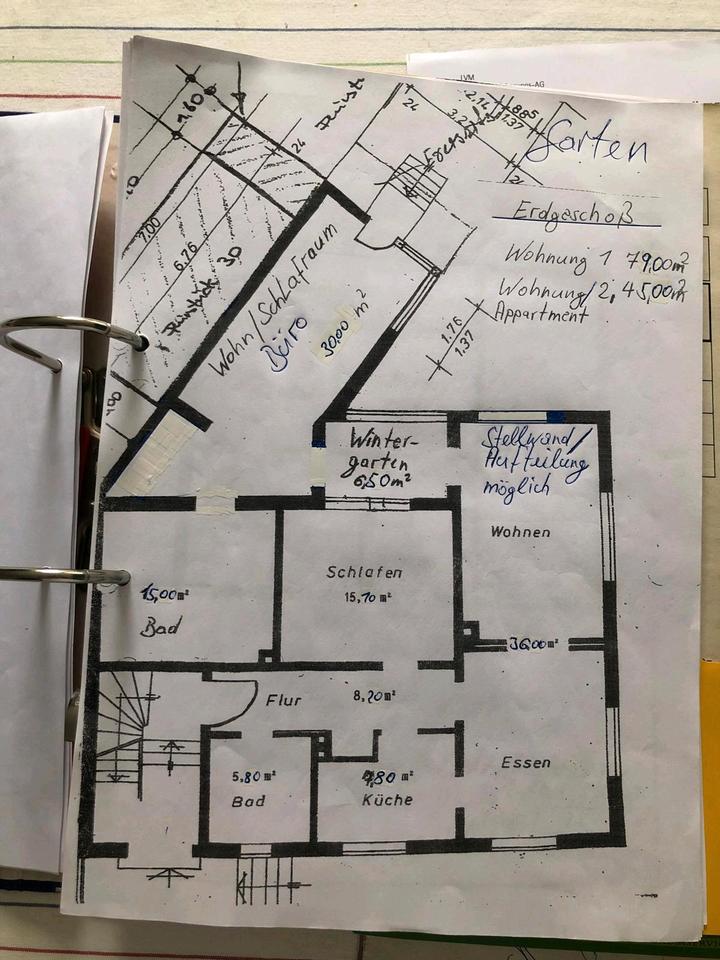 LVM
-AG
Garten
Erdgeschoß
Wohnung 1 79,00m²
Wohnung/2, 45,00m²
Appartment
24
24
7.00
6.76
30
1.00
3.22
2.14
.885
1.37
1.76
1.37
Wohn/Schlafraum
Büro
30,00 m²
Winter-
garten
6,50m²
Stellwand/
Aufteilung
möglich
Wohnen
36,00m²
Schlafen
15,70 m²
15,00m²
Bad
Flur 8,20m²
5,80m²
Bad
9,80 m²
Küche
Essen